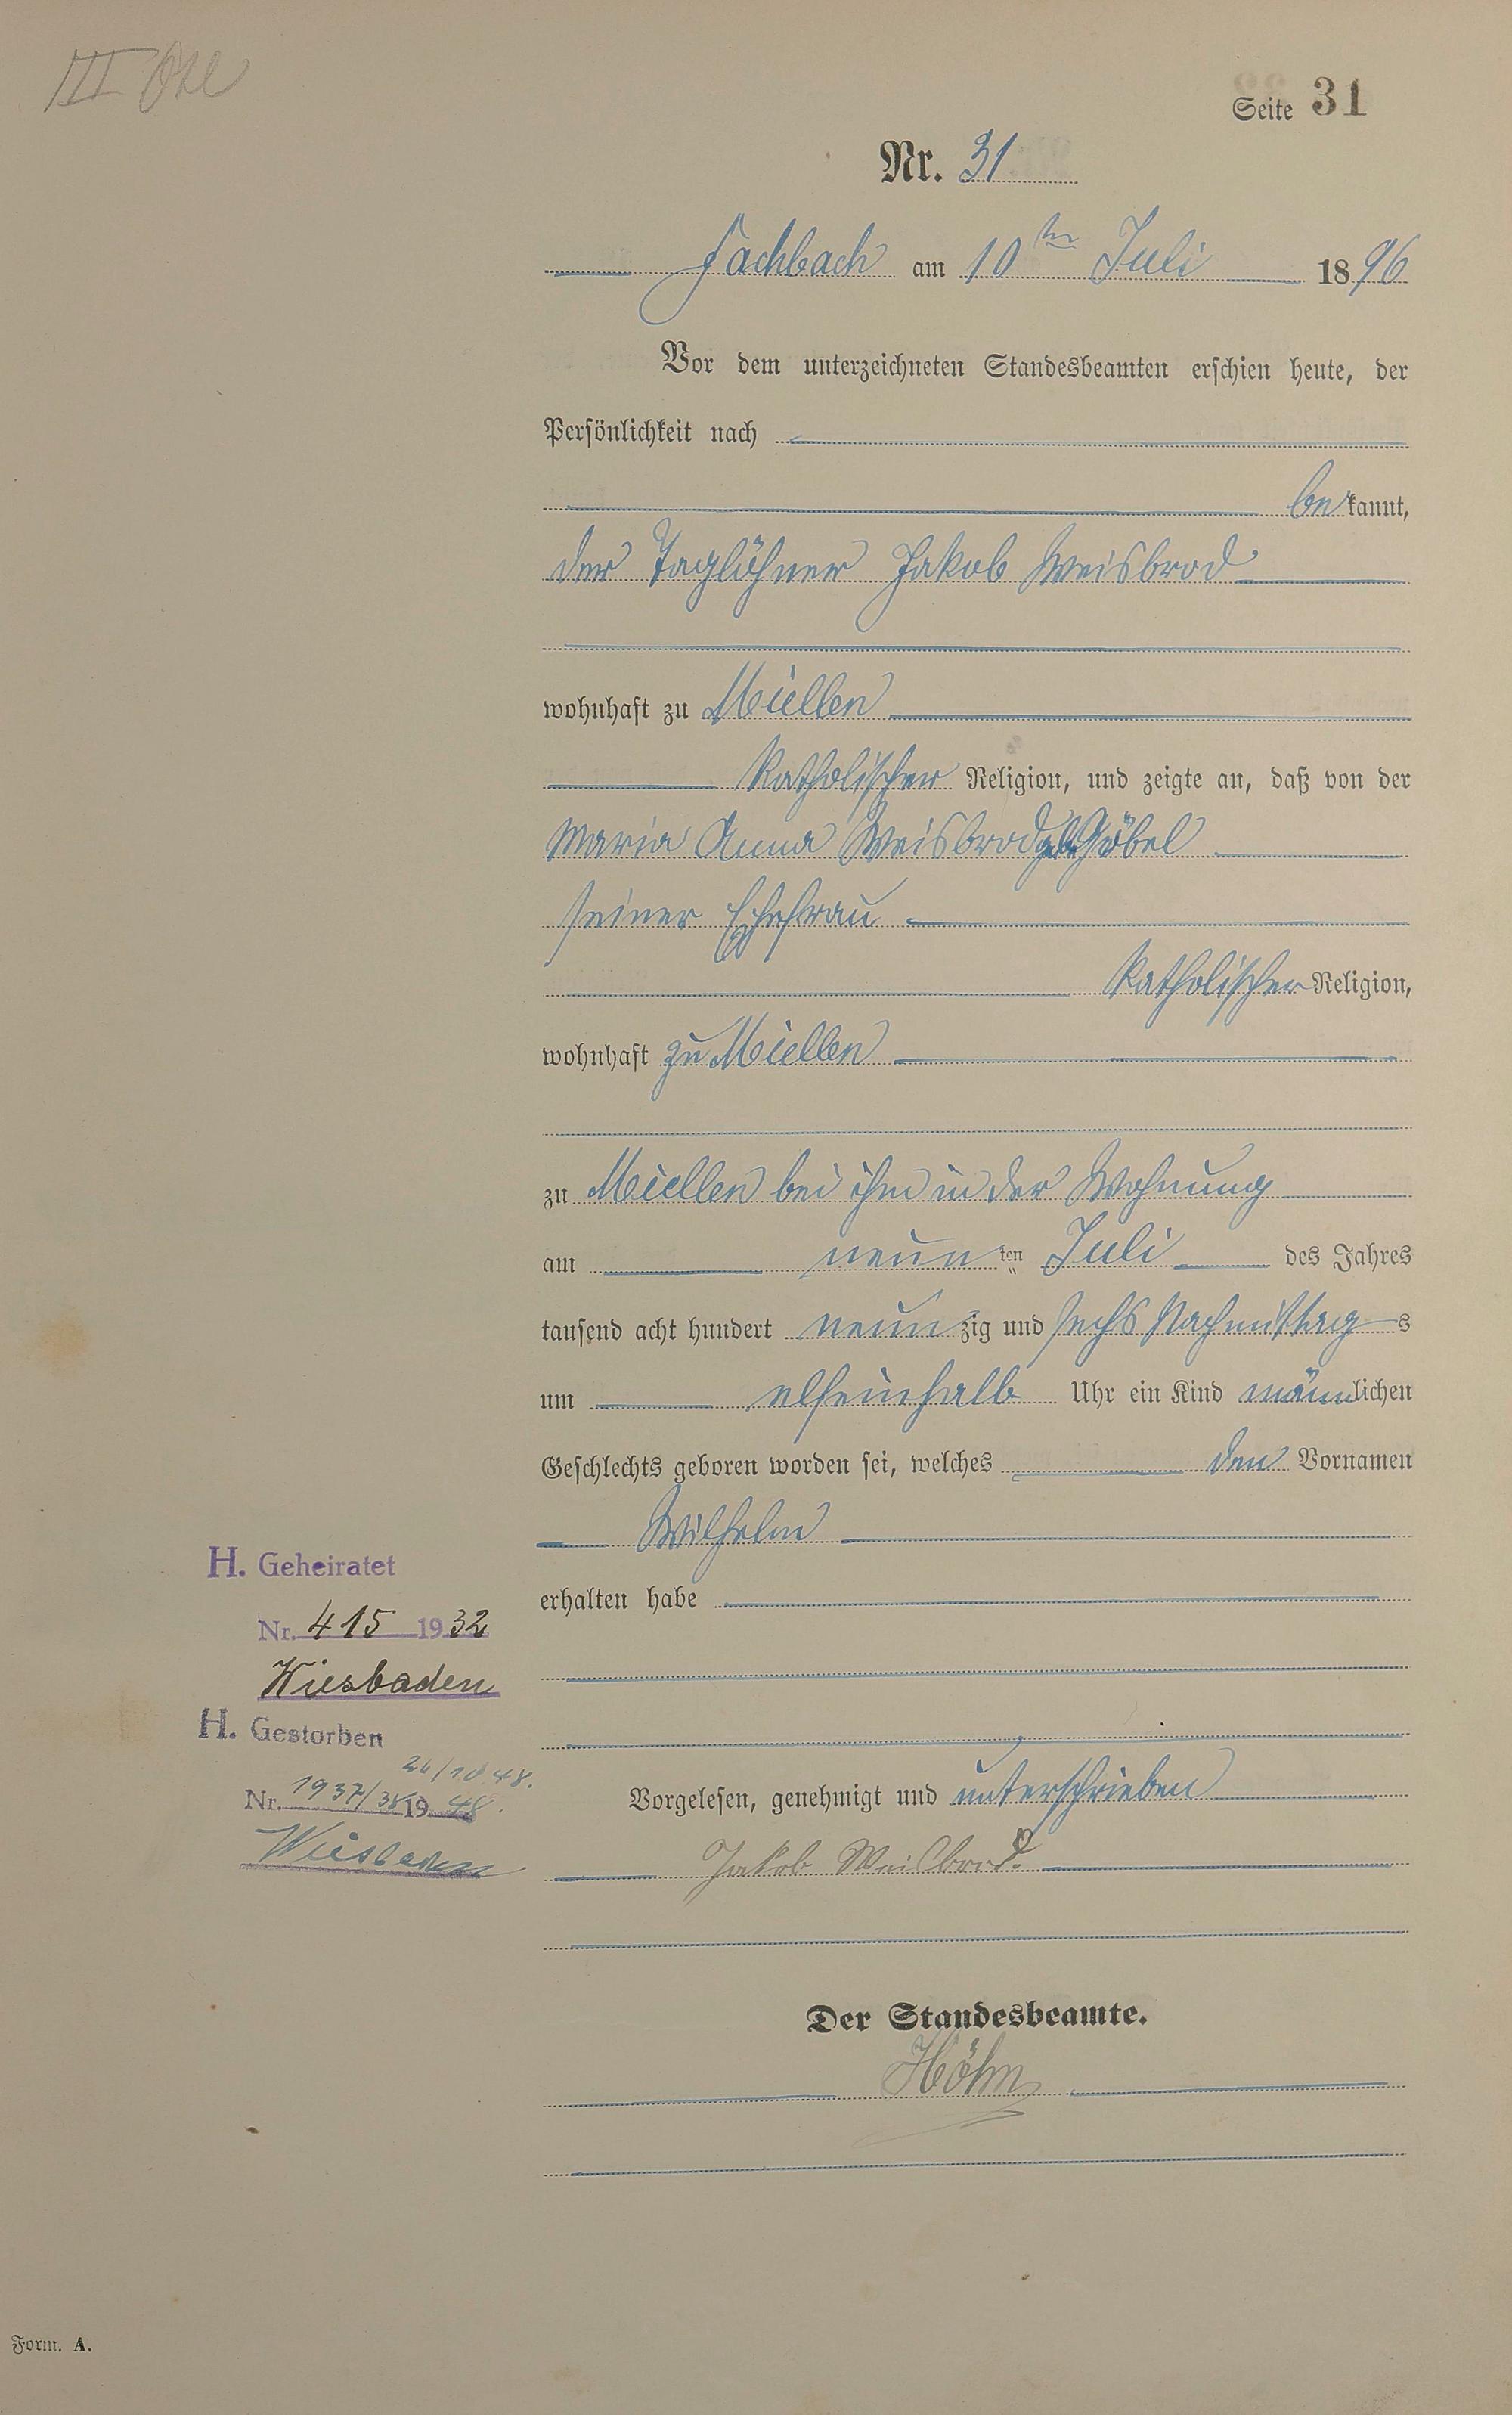 III
Seite 31
Nr. 31
Fachbach am 10ten Juli 1896
Vor dem unterzeichneten Standesbeamten erschien heute, der
Persönlichkeit nach
bekannt,
der Taglöhner Jakob Weisbrod
wohnhaft zu Miellen
katholischer Religion, und zeigte an, daß von der
Maria Anna Weisbrod geb. Göbel
seiner Ehefrau
katholischer Religion,
wohnhaft zu Miellen
zu Miellen bei ihm in der Wohnung
am neunten Juli des Jahres
tausend acht hundert neunzig und sechs Nachmittags
um elfeinhalb Uhr ein Kind männlichen
Geschlechts geboren worden sei, welches den Vornamen
Wilhelm
erhalten habe
H. Geheiratet
Nr. 415 1932
Wiesbaden
H. Gestorben
Nr. 1937/38 1948.
Wiesbaden
Vorgelesen, genehmigt und unterschrieben
Jakob Weisbrod
Der Standesbeamte.
Höhn
Form. A.